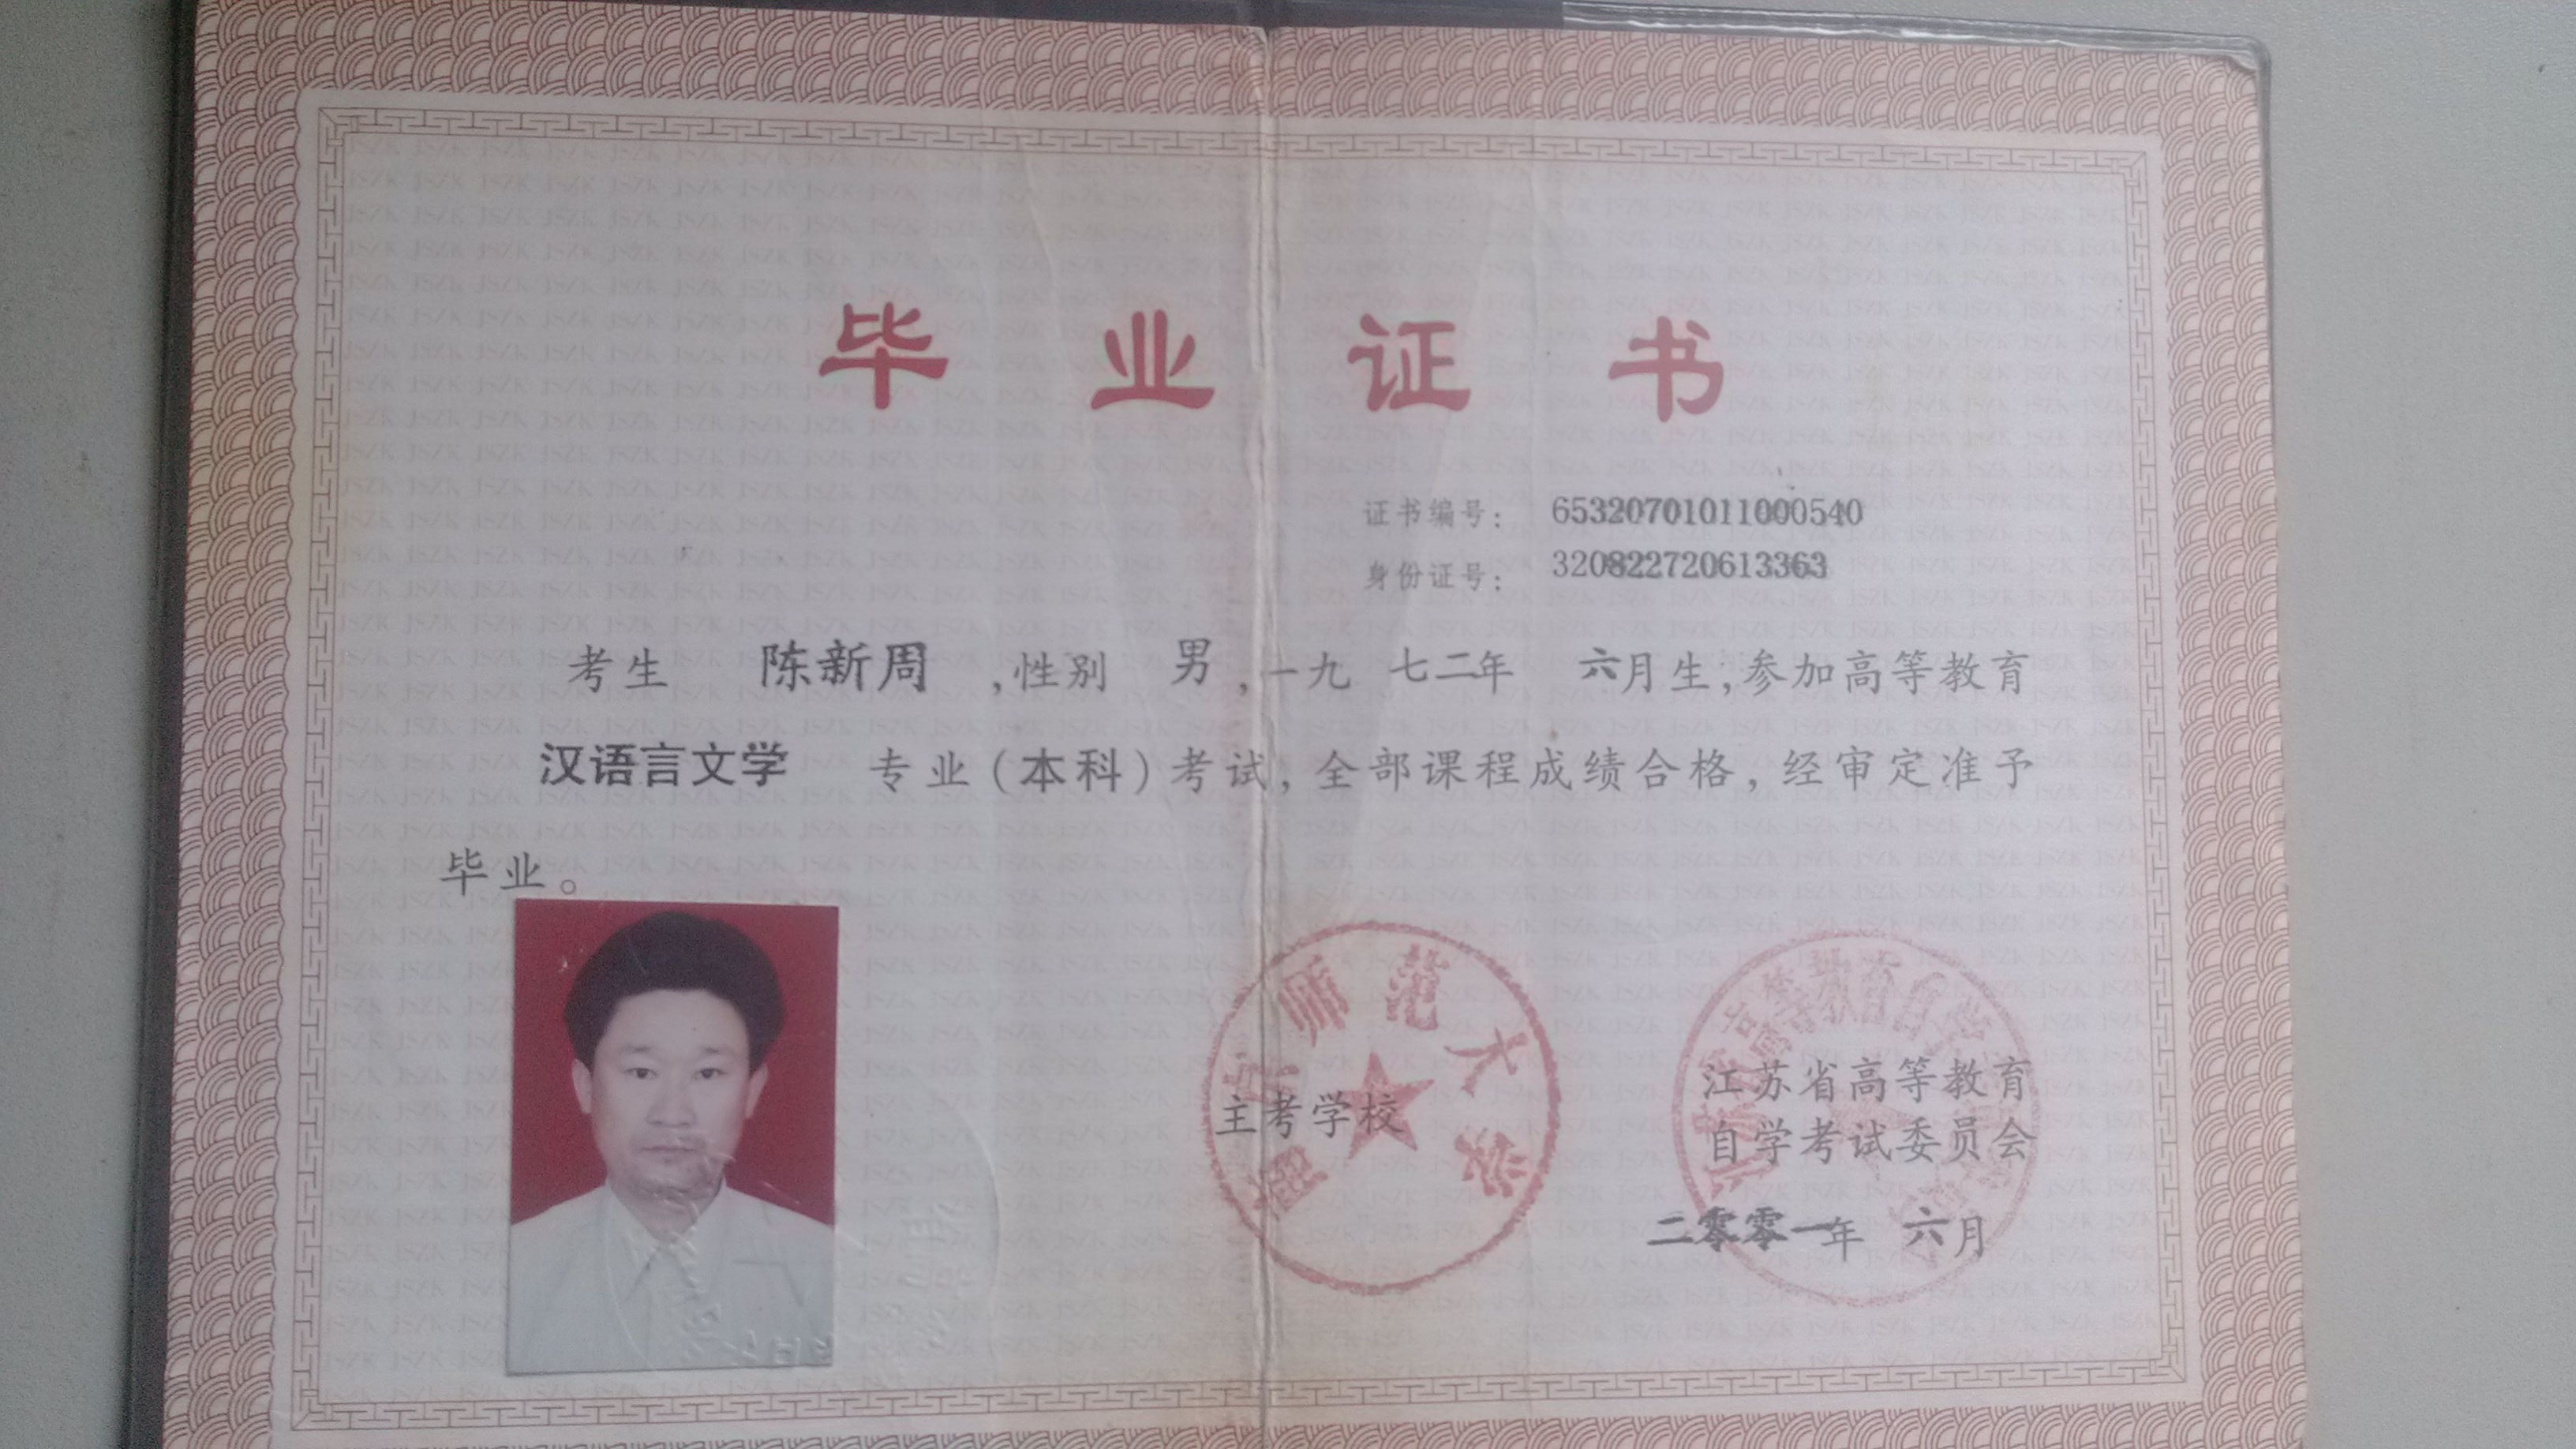 毕业证书
证书编号： 65320701011000540
身份证号： 320822720613363
考生 陈新周 ,性别 男 ,一九 七二年 六月生,参加高等教育
汉语言文学 专业(本科)考试,全部课程成绩合格,经审定准予
毕业。
师范大学
主考学校
江苏省高等教育
自学考试委员会
二零零一年 六月